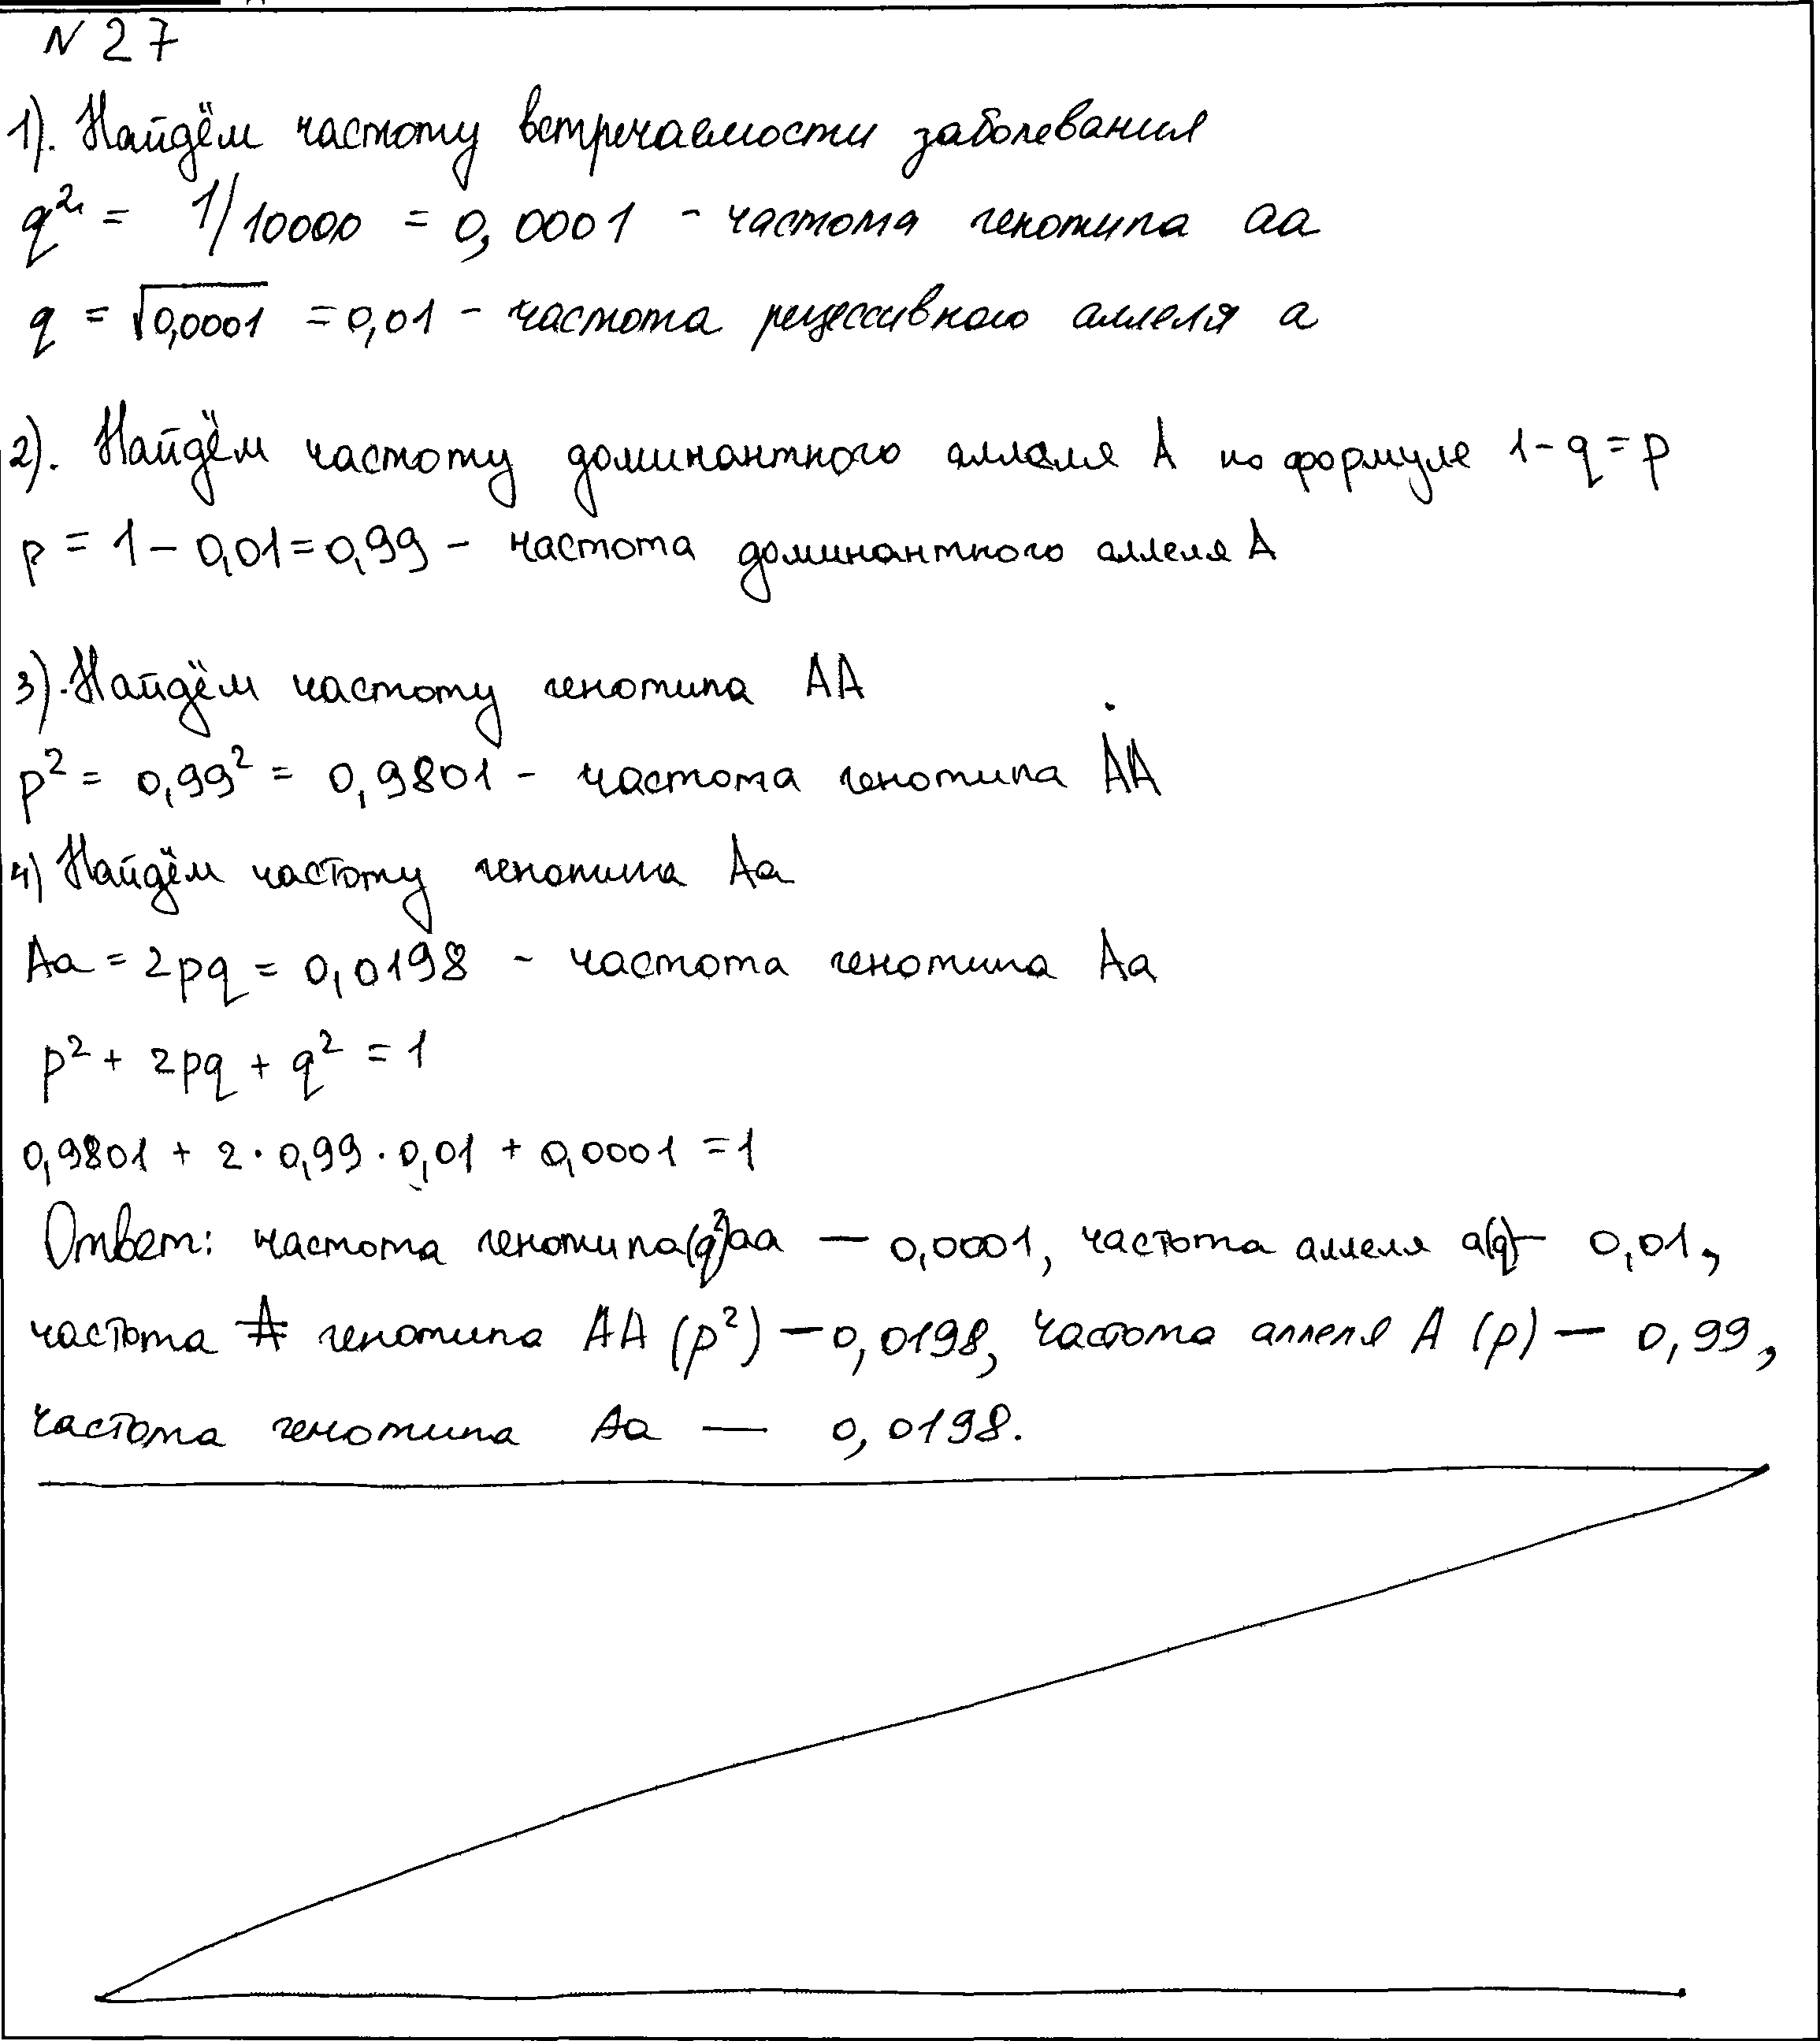 N 27
1). Найдём частоту встречаемости заболевания
q² = 1/10000 = 0,0001 - частота генотипа aa
q = √0,0001 = 0,01 - частота рецессивного аллеля a
2). Найдём частоту доминантного аллеля A по формуле 1-q=p
p = 1 - 0,01 = 0,99 - частота доминантного аллеля A
3). Найдём частоту генотипа AA
p² = 0,99² = 0,9801 - частота генотипа AA
4) Найдём частоту генотипа Aa
Aa = 2pq = 0,0198 - частота генотипа Aa
p² + 2pq + q² = 1
0,9801 + 2 · 0,99 · 0,01 + 0,0001 = 1
Ответ: частота генотипа (q²) aa — 0,0001, частота аллеля a(q) — 0,01,
частота A генотипа AA (p²) — 0,0198, частота аллеля A (p) — 0,99,
частота генотипа Aa — 0,0198.